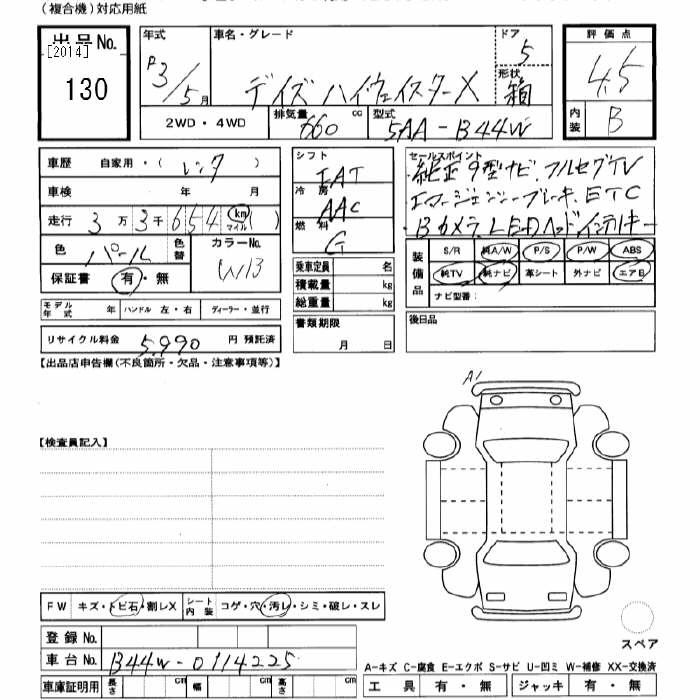 (複合機)対応用紙
出品No.
[2014]
130
年式
R3/5月
車名・グレード
デイズ ハイウェイスターX
ドア
5
形状
箱
評価点
4.5
内装
B
2WD・4WD
排気量
660 cc
型式
5AA-B44W
車歴 自家用・( レンタ )
車検 年 月
走行 3万3千654 km マイル ( )
色 パール
色替
カラーNo.
W13
保証書 有・無
モデル年式 年 ハンドル 左・右 ディーラー・並行
リサイクル料金 5,990 円 預託済
シフト
IAT
冷房
AAC
燃料
G
乗車定員 名
積載量 kg
総重量 kg
書類期限
月 日
セールスポイント
純正9型ナビ.フルセグTV
エマージェンシーブレーキ.ETC
Bカメラ.LEDヘッド.インテリキー
装備品
S/R 純A/W P/S P/W ABS
純TV 純ナビ 革シート 外ナビ エアB
ナビ型番:
後日品
【出品店申告欄(不良箇所・欠品・注意事項等)】
A1
【検査員記入】
FW キズ・トビ石・割レX
シート内装 コゲ・穴・汚レ・シミ・破レ・スレ
登録No.
車台No. B44W-0114225
車庫証明用 長さ cm 幅 cm 高さ cm
スペア
A-キズ C-腐食 E-エクボ S-サビ U-凹ミ W-補修 XX-交換済
工具 有・無 ジャッキ 有・無